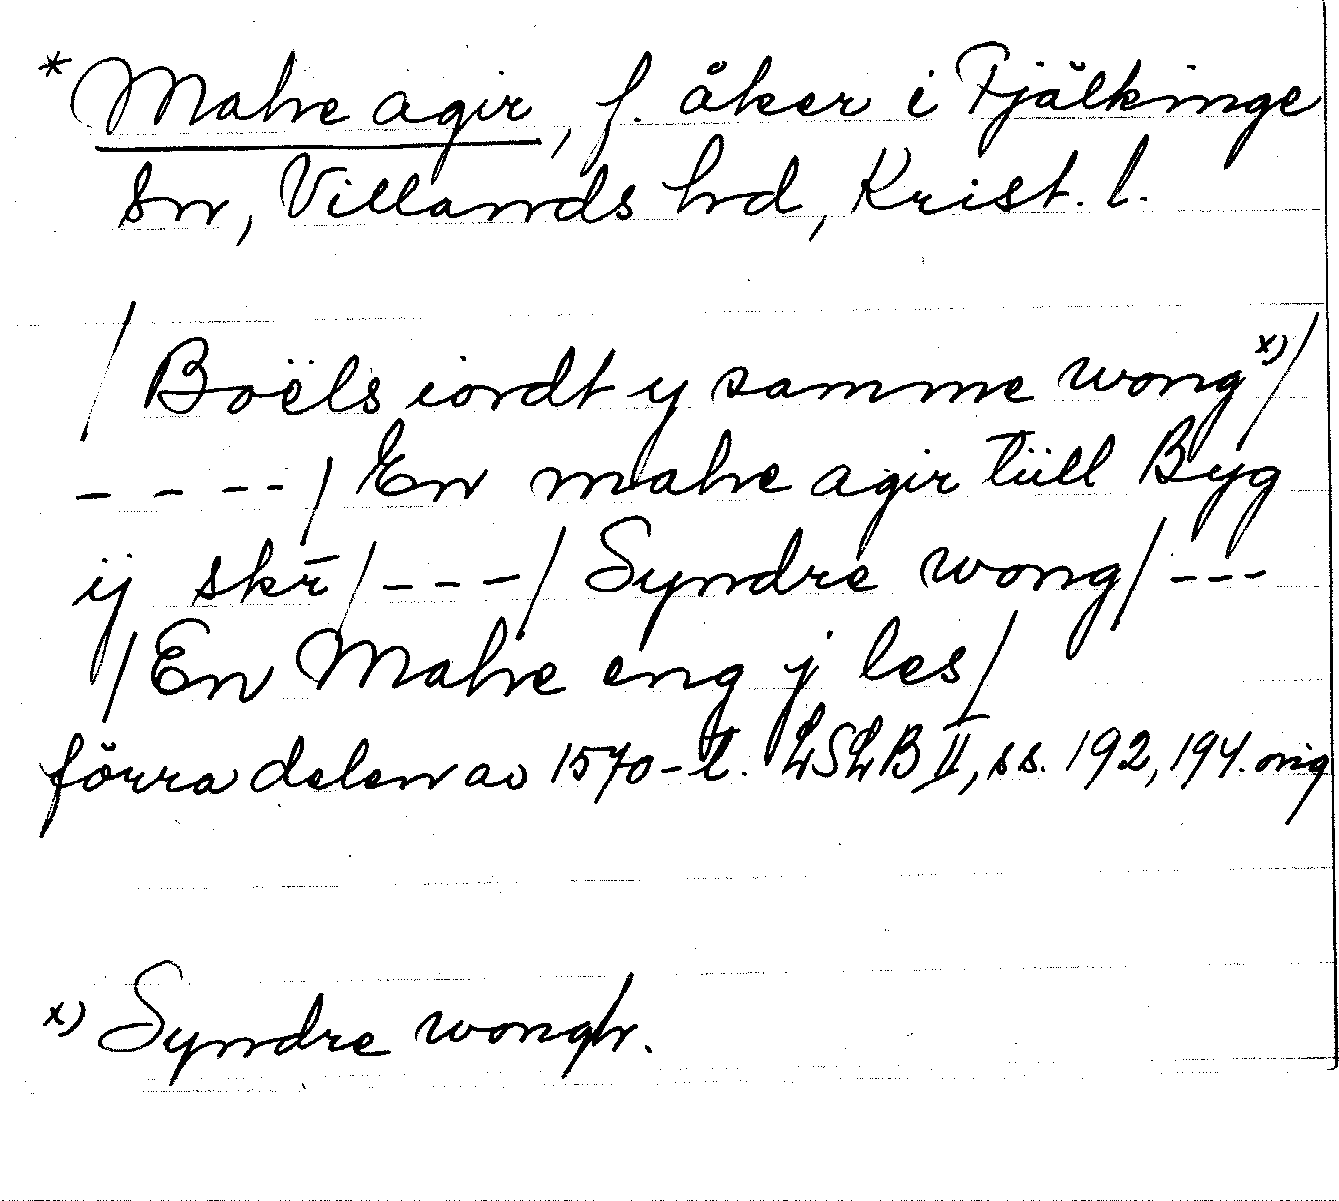 * Mahe agir, f. åker i Fjälkinge
sn, Villands hd, Krist. l.
/ Boëls iordt y samme wong x) /
- - - - / En mahe agir tiill Byg
ij skr̄ / - - - / Syndre wong / - - -
/ En Mahe eng j les /
förra delen av 1570-t. LSLB II, ss. 192, 194. orig
x) Syndre wongh.